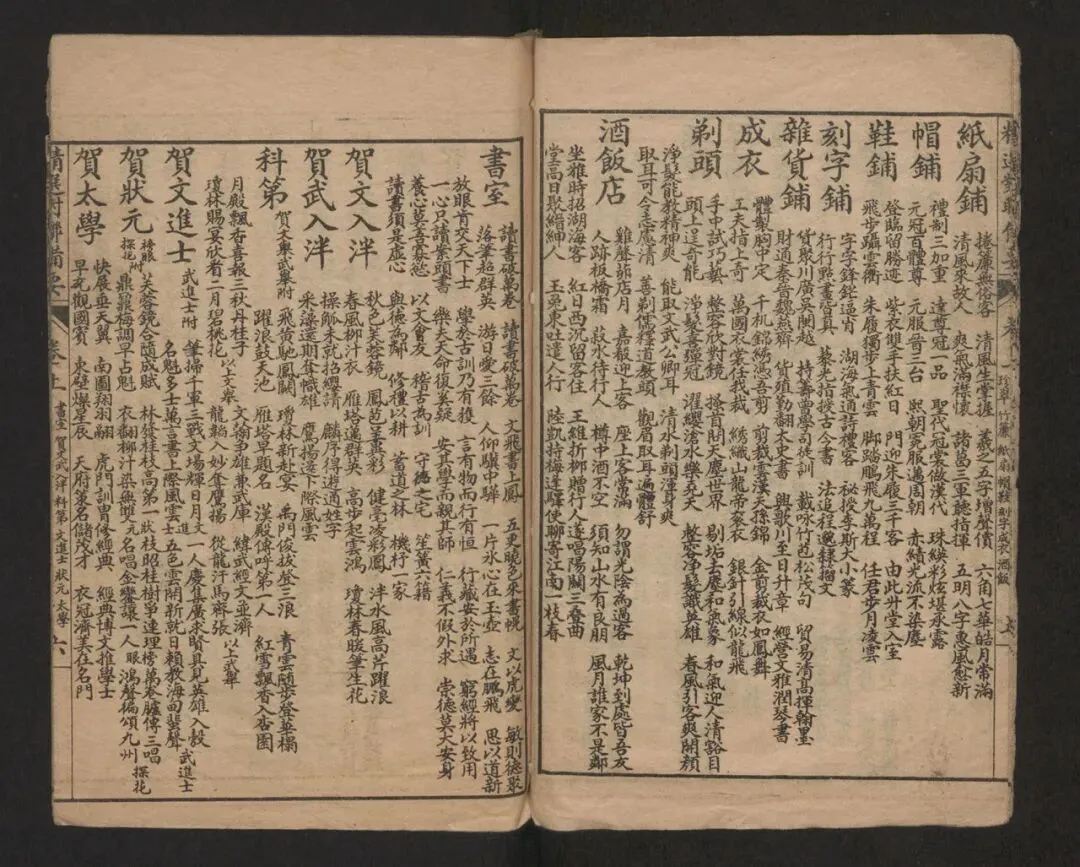 紙扇鋪 捲簾無俗客 清風生掌握 羲之五字增聲價 六角七華皓月常滿
清風來故人 爽氣滿襟懷 諸葛三軍聽指揮 五明八字惠風愁新
帽鋪 禮制三加重 達尊冠一品 聖代冠裳做漢代 珠緱彩炫堪承露
元冠百體尊 元服晉三台 熙朝冕服邁周朝 赤幘光流不染塵
鞋鋪 登臨留勝迹 紫衣雙手扶紅日 門迎朱履三千客 由此升堂入室
飛步躡雲衢 朱履獨步上青雲 脚踏鵬飛九萬程 任君步月凌雲
刻字鋪 字字鋒鋩逼肖 湖海氣通詩禮客 秘授李斯大小篆
行行點畫皆真 藜光指授古今書 法追程邈隸籀文
雜貨鋪 貨聚川廣吳閩越 持籌曾學司徒訓 載咏竹苞松茂句 貿易清高揮翰墨
財通秦晉魏燕齊 貨殖勤翻太史書 與歌川至日升章 經營文雅潤琴書
成衣 體製胸中定 千机錦綉憑吾剪 剪裁雲漢天孫錦 金剪裁衣如鳳舞
工夫指上奇 萬國衣裳任我裁 綉織山龍帝袞衣 銀針引線似龍飛
剃頭 手中試巧藝 整容欣對鏡 搔首問天塵世界 剔垢去塵和氣象 和氣迎人清豁目
頭上逞奇能 淨髮喜彈冠 濯纓滄水樂堯天 整容淨髮識英雄 春風引客爽開顏
淨髮能教精神爽 能取文武公卿耳 清水剃頭渾身爽
取耳可令志應清 善剃儒釋道教頭 觀眉取耳遍體舒
酒飯店 雞聲茆店月 嘉殽迎上客 座上客常滿 勿謂光陰為過客 乾坤到處皆吾友
人跡板橋霜 菽水待行人 樽中酒不空 須知山水有良朋 風月誰家不是鄰
坐雅時招湖海客 紅日西沉留客住 王維折柳贈行人遂唱陽關三叠曲
堂高日聚縉紳人 玉兔東吐遣人行 陸凱持梅逢驛使聊寄江南一枝春
書室 讀書破萬卷 讀書破萬卷 文飛書上鳳 五更曉色來書幌 文以虎變 敏則德聚
落筆超群英 游日愛三餘 人仰驥中驊 一片氷心在玉壺 志在鵬飛 思以道新
放眼肯交天下士 學於古訓乃有獲 言有物而行有恒 行藏安於所遇 窮經將以致用
一心只讀案頭書 樂夫天命復奚疑 安其學而親其師 仁義不假外求 崇德莫大安身
養心莫善寡慾 以文會友 稽古為訓 守德之宅 笙簧六籍
讀書須是虛心 與德為鄰 修禮以耕 蓄道之林 機杼一家
賀文入泮 秋色芙蓉鏡 鳳芭呈異彩 健亭凌彩鳳 泮水風高芹躍浪
春風柳汁衣 雁塔邁群英 高步起雲鴻 瓊林春暖筆生花
賀武入泮 操觚未就招纓請 麟序得游通姓字
采藻還期奪幟雄 鷹揚達下際風雲
科第 賀文舉武舉附 飛黃馳鳳闕 瓊林新赴宴 禹門俊拔登三浪 青雲隨步登華榻
躍浪鼓天池 雁塔早題名 漢殿傳呼第一人 紅雪飄香入杏園
月殿飄香喜報三秋丹桂子 文翰爭雄兼武庫 緯武經文並濟
瓊林賜宴欣看二月碧桃花 以上文舉 龍韜入妙奪鷹揚 從龍汗馬齊張 以上武舉
賀文進士 武進士附 筆掃千軍三戰文場輝日月 文一人慶集廣求賢員見英雄入彀
名魁多士萬言書上際風雲 士五色雲開新就日賴教海甸蜚聲 武進士
賀狀元 榜眼探花附 芙蓉鏡合隨成賦 林發桂枝高第一 狀枝昭桂樹爭連理榜萬卷臚傳三唱
鼎羅梅調早占魁 衣翻柳汁染無雙 元名唱金鑾讓一人眼鴻聲徧頌九州 探花
賀太學 快展垂天翼 南圖翔羽翮 虎門訓胄修經典 經典博文推學士
早充觀國賓 東壁燦星辰 天府策名儲茂才 衣冠濟美在名門
卷上 書室 賀文武入泮 科第 文進士 狀元 太學 六